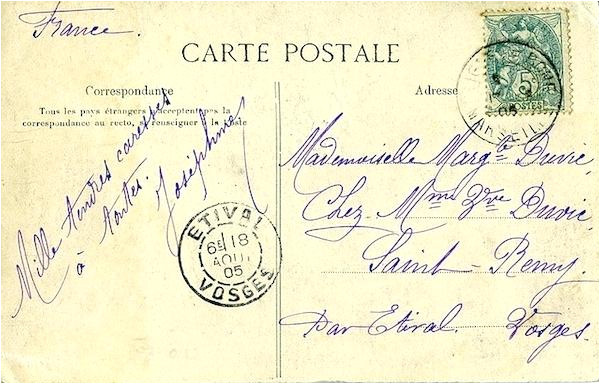 France.
CARTE POSTALE
Correspondance
Tous les pays étrangers n'acceptent pas la
correspondance au recto, se renseigner à la Poste
Mille tendres caresses
à toutes.
Joséphine
Adresse
5
POSTES
05
MARSEIL
Mademoiselle Margte Duvic,
Chez Mme Vve Duvic
Saint-Remy.
Par Etival. Vosges.
ETIVAL
6E 18
AOUT
05
VOSGES